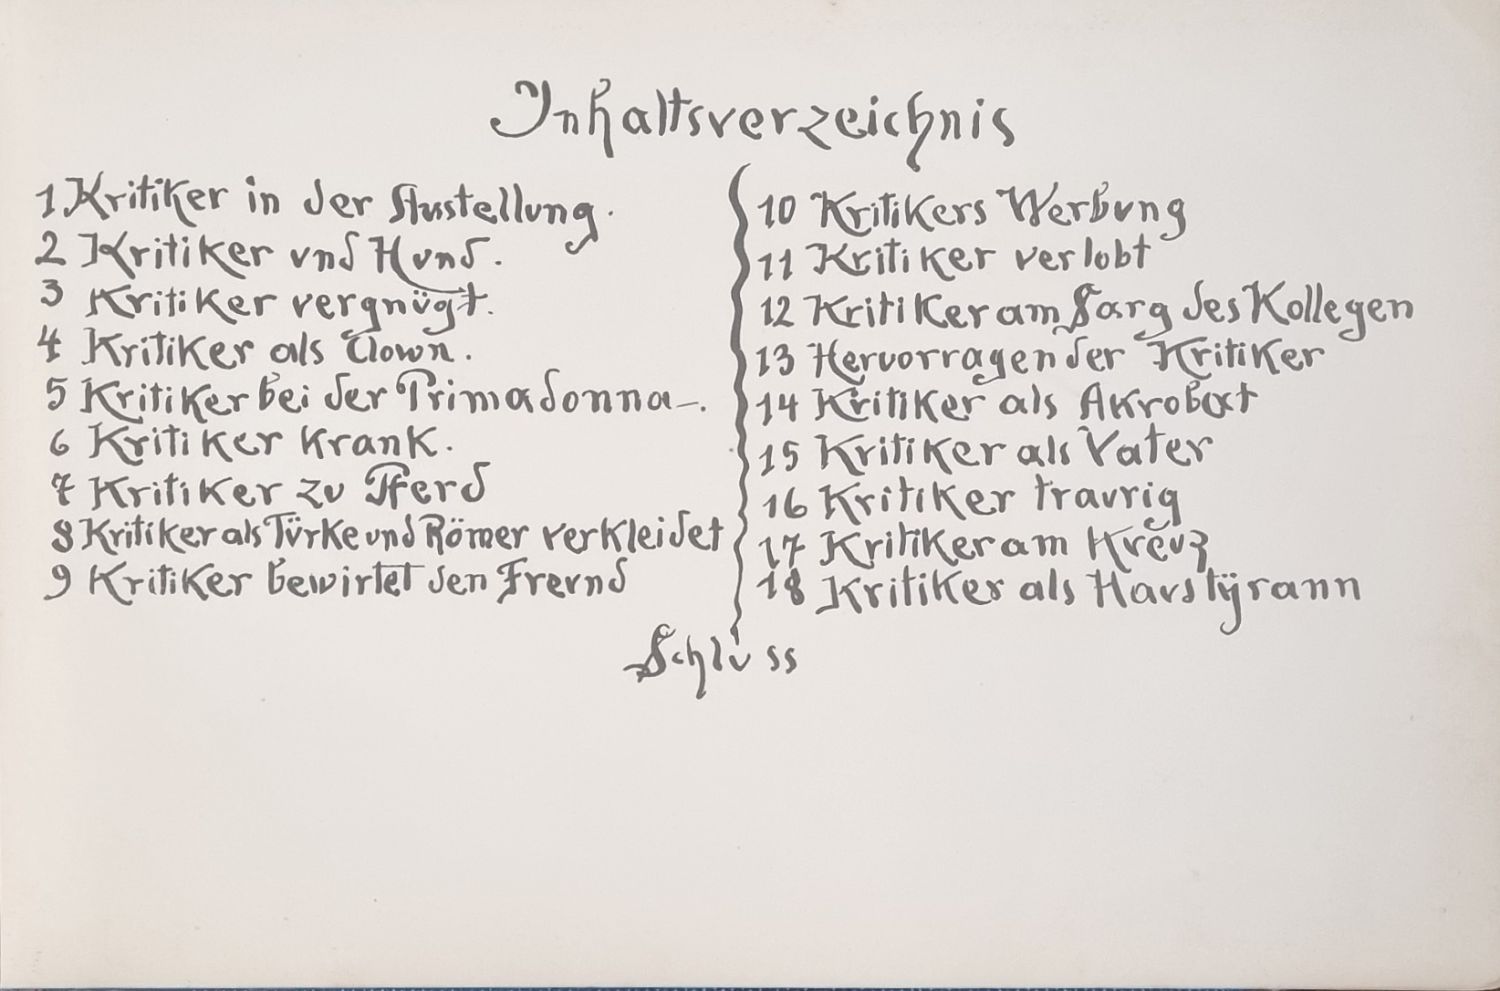 Inhaltsverzeichnis
1 Kritiker in der Austellung.
2 Kritiker und Hund.
3 Kritiker vergnügt.
4 Kritiker als Clown.
5 Kritiker bei der Primadonna–.
6 Kritiker krank.
7 Kritiker zu Pferd
8 Kritiker als Türke und Römer verkleidet
9 Kritiker bewirtet den Freund
10 Kritikers Werbung
11 Kritiker verlobt
12 Kritiker am Sarg des Kollegen
13 Hervorragender Kritiker
14 Kritiker als Akrobat
15 Kritiker als Vater
16 Kritiker traurig
17 Kritiker am Kreuz
18 Kritiker als Haustÿrann
Schluss